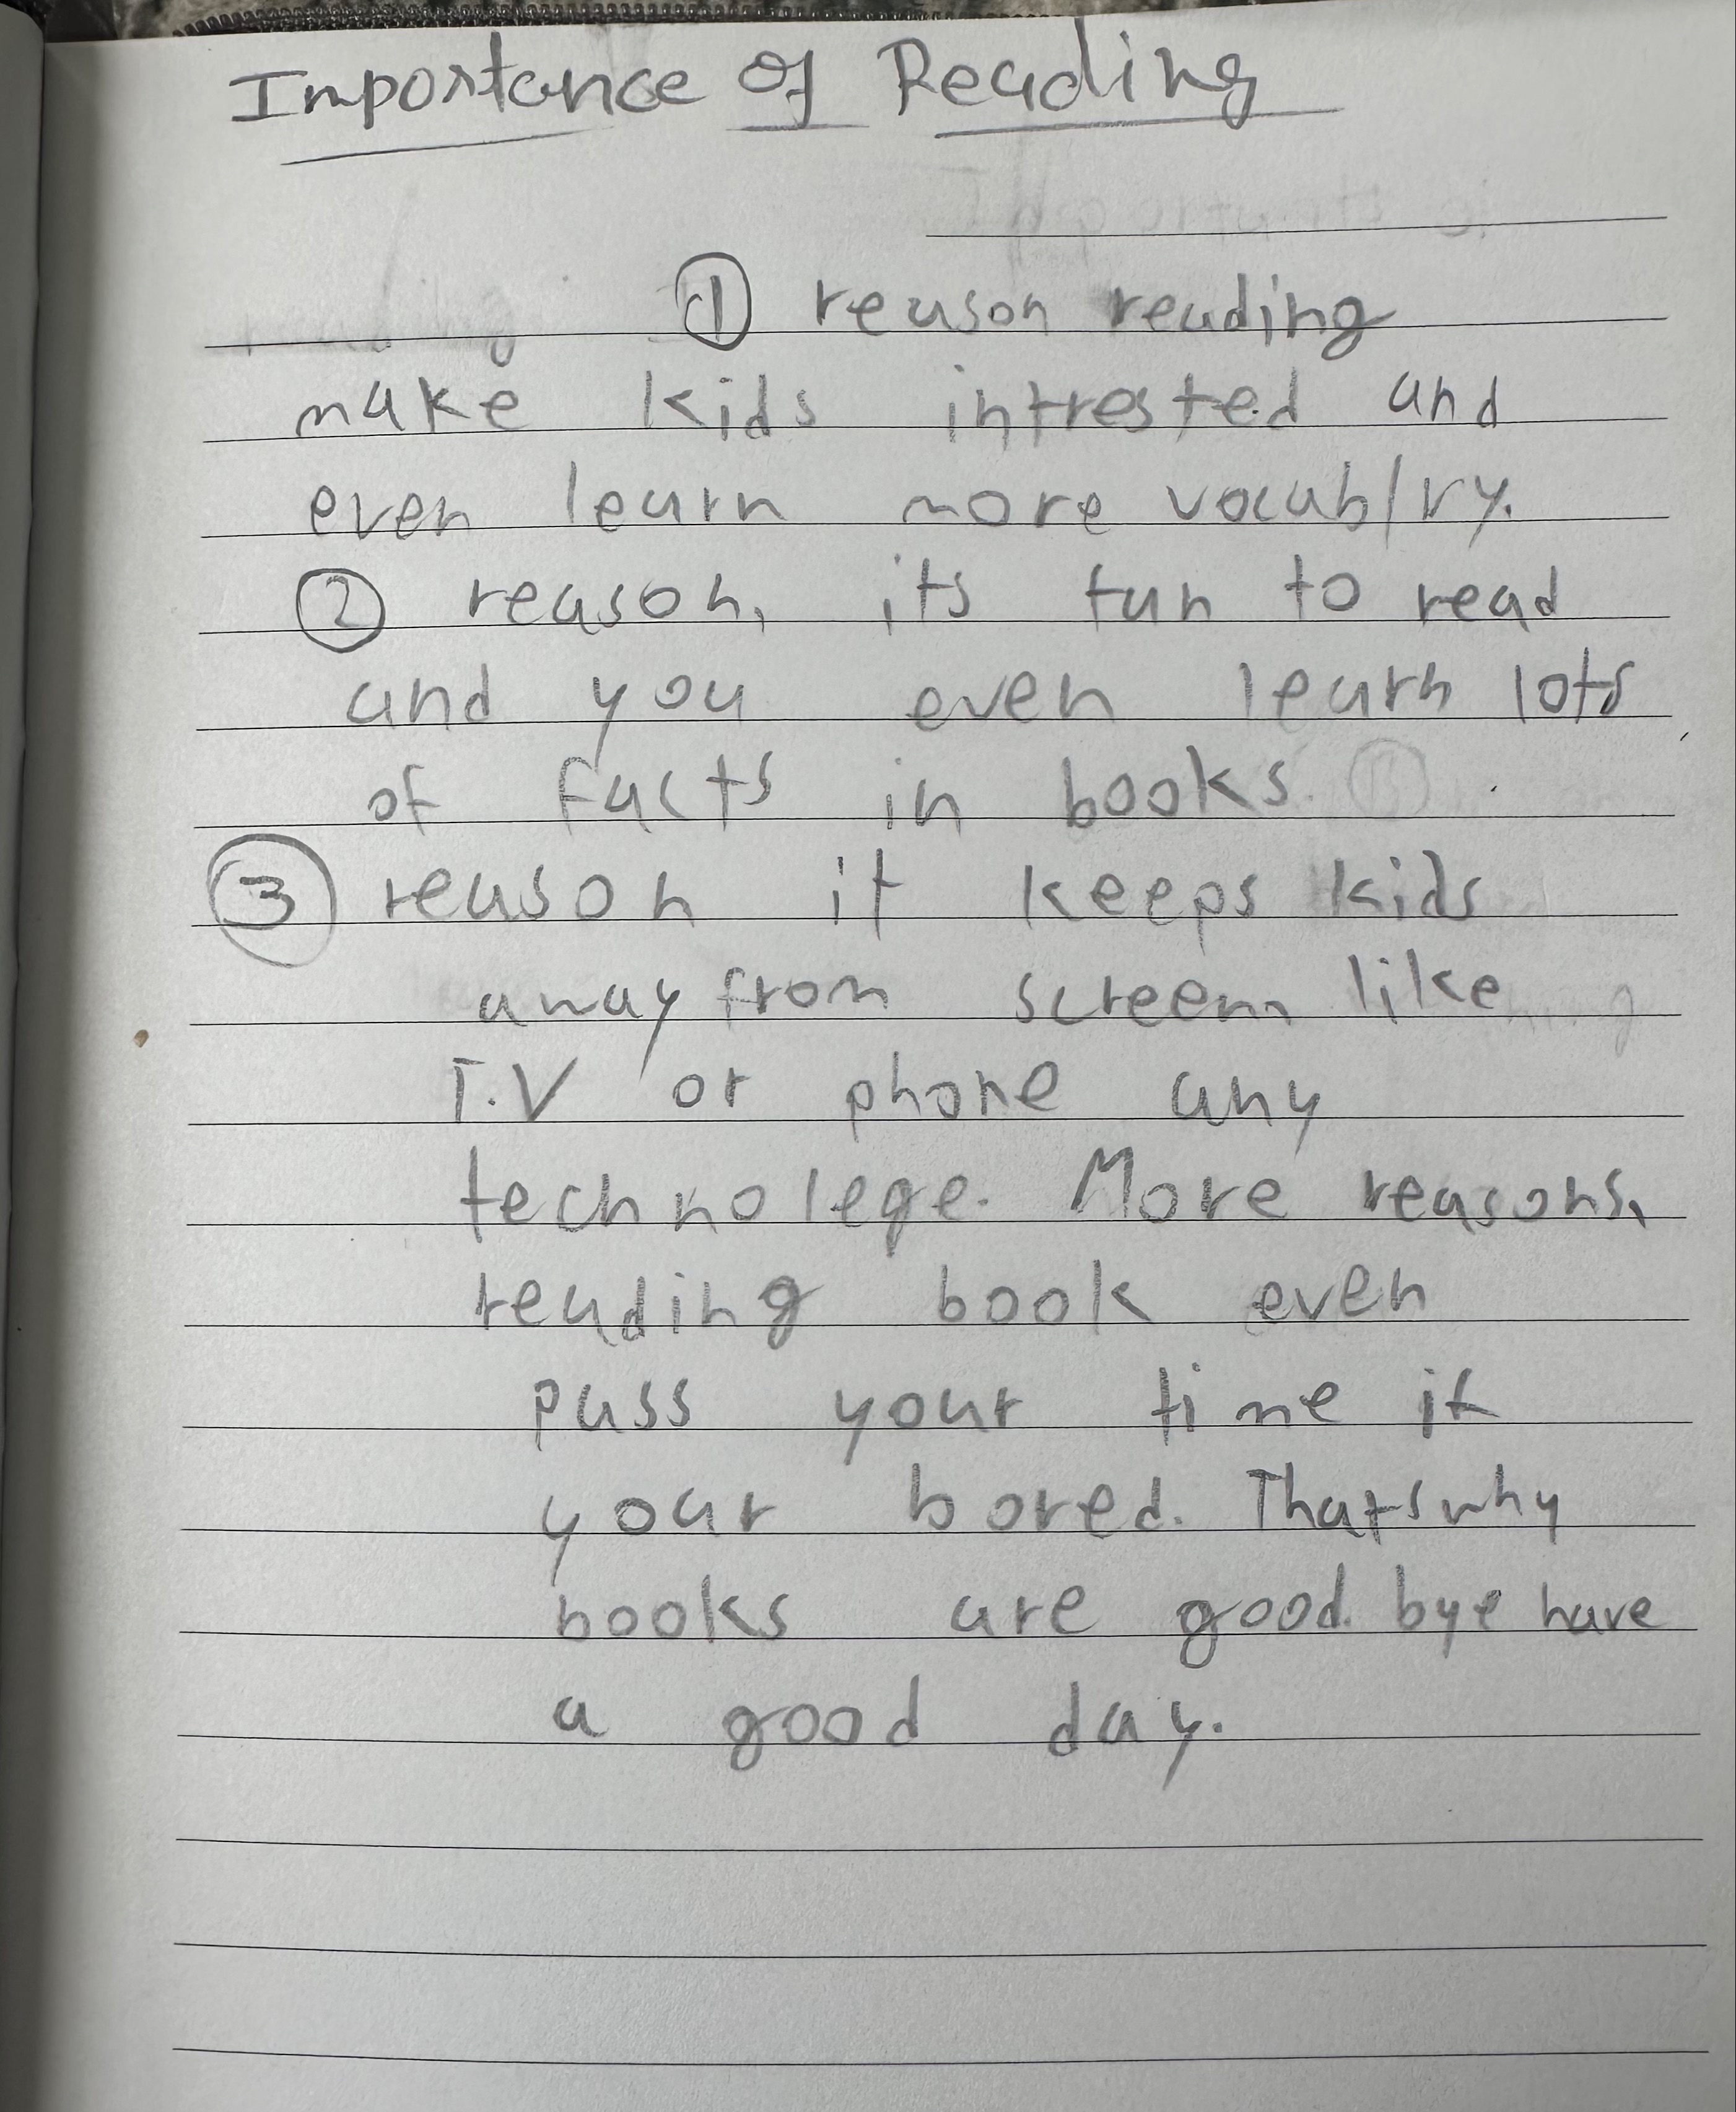 Importance of Reading
① reason reading
make kids intrested and
even learn more vocablry.
② reason, its fun to read
and you even learn lots
of facts in books.
③ reason it keeps kids
away from screen, like
T.V or phone any
technolege. More reasons,
reading book even
pass your time if
your bored. Thats why
books are good. bye have
a good day.